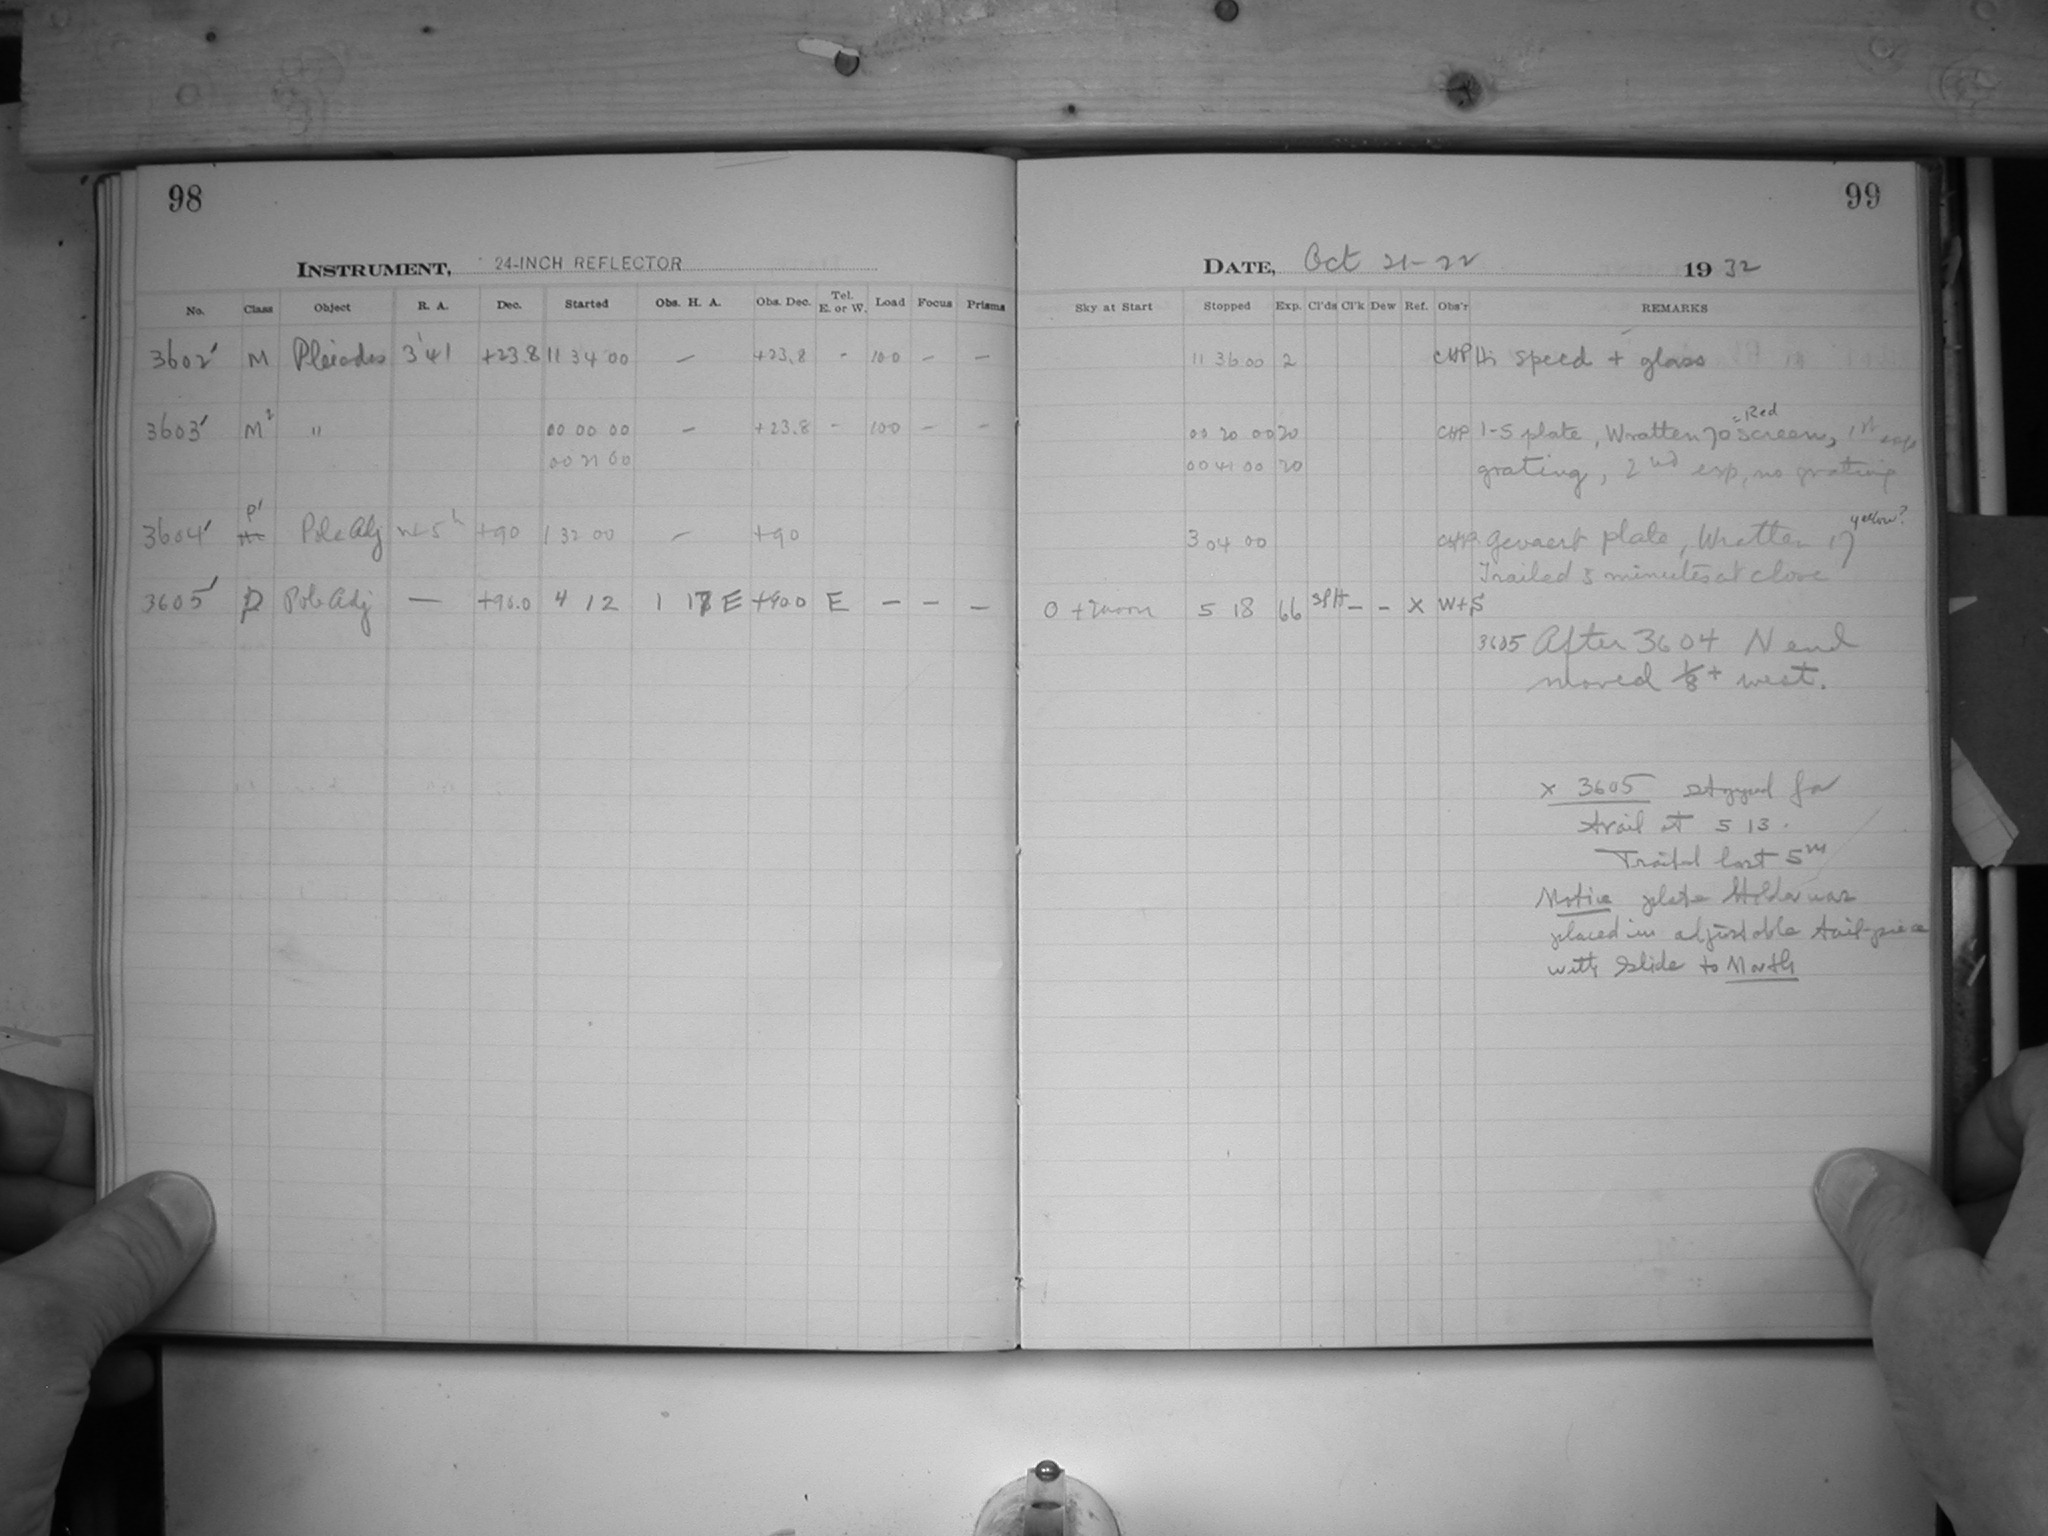 98
INSTRUMENT, 24-INCH REFLECTOR
No. Class Object R. A. Dec. Started Obs. H. A. Obs. Dec. Tel. E. or W. Load Focus Prisms
3602' M Pleiades 3 41 +23.8 11 34 00 — +23.8 - 100 — —
3603' M² " 00 00 00 — +23.8 - 100 — —
00 21 00
P'
3604' Pole Adj W 5h +90 1 32 00 — +90
3605' P Pole Adj — +90.0 4 12 1 17 E +90.0 E — — —
99
DATE, Oct 21-22 1932
Sky at Start Stopped Exp. Cl'ds Cl'k Dew Ref. Obs'r REMARKS
11 36 00 2 CHP Hi speed + glass
= Red
00 20 00 20 CHP 1-S plate, Wratten 70 screen, 1st exp
00 41 00 20 grating, 2nd exp, no grating
yellow?
3 04 00 CHP. Gevaert plate, Wratten 17
Trailed 5 minutes at close
0 + moon 5 18 66 — - X W+S
3605 After 3604 N end
moved 1/8 + west.
x 3605 stopped for
trail at 5 13.
Trailed last 5m
Notice plate Holder was
placed in adjustable tail-piece
with slide to North